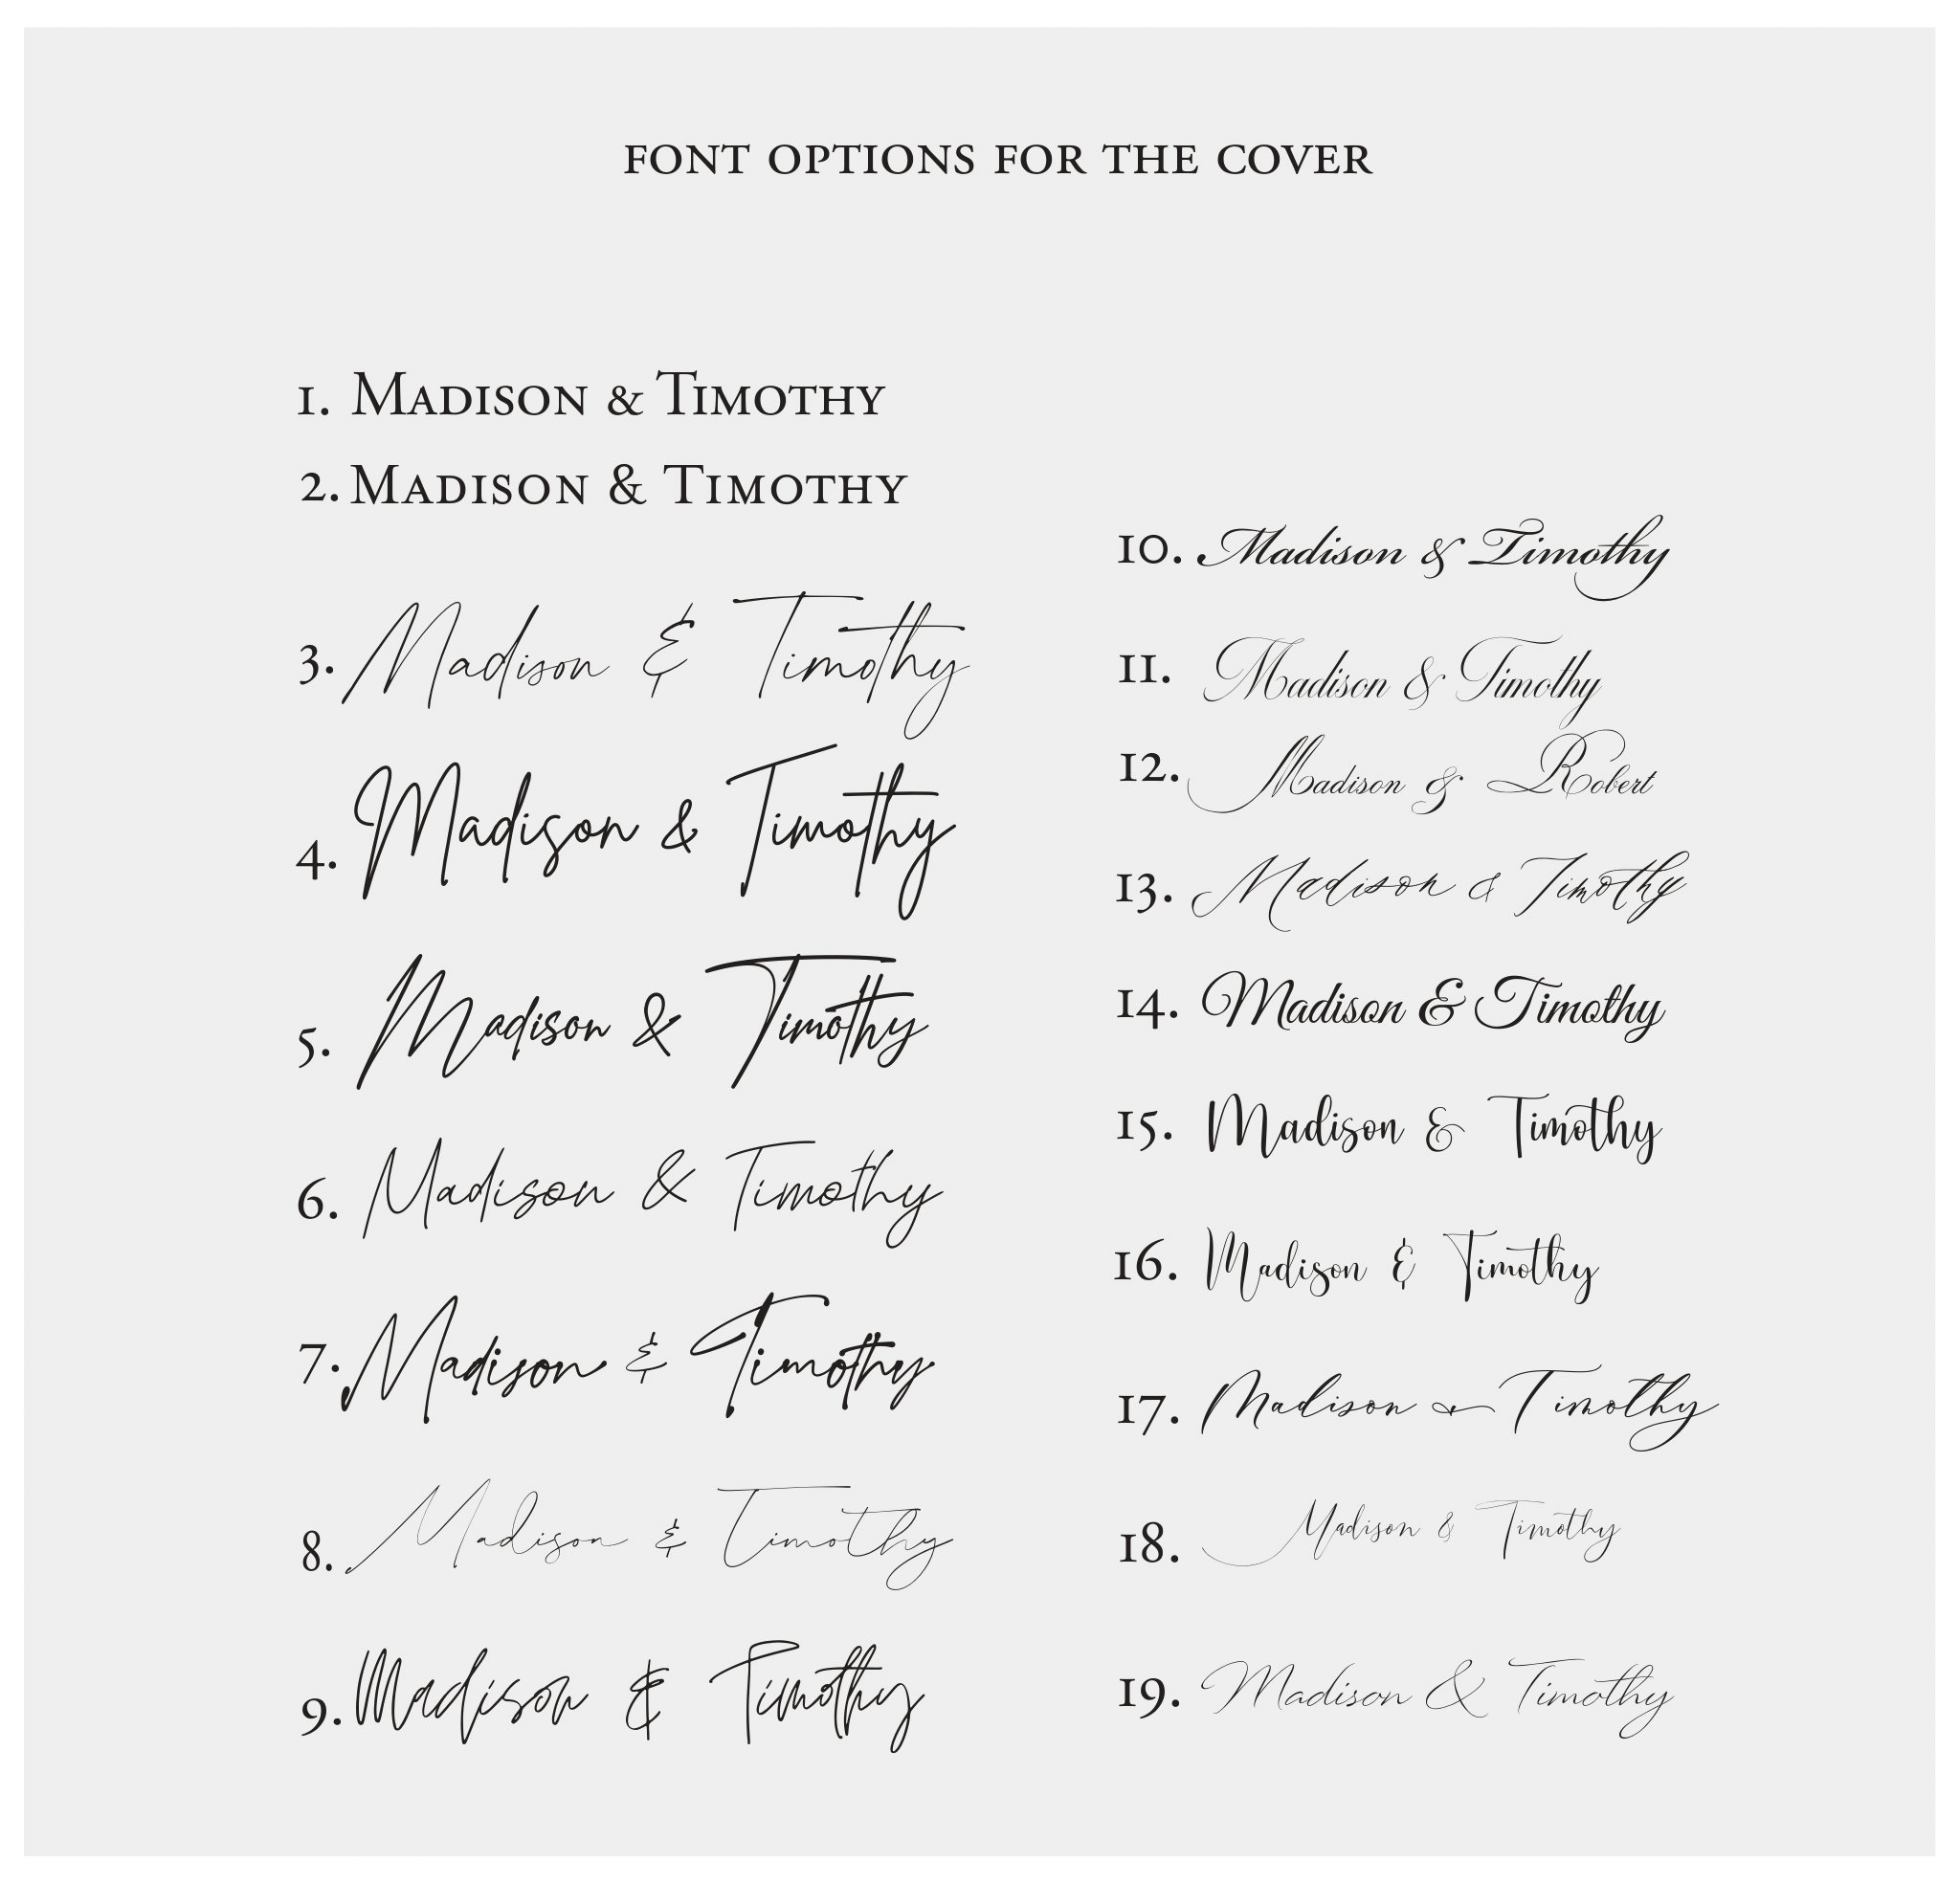 FONT OPTIONS FOR THE COVER
1. Madison & Timothy
2. Madison & Timothy
3. Madison & Timothy
4. Madison & Timothy
5. Madison & Timothy
6. Madison & Timothy
7. Madison & Timothy
8. Madison & Timothy
9. Madison & Timothy
10. Madison & Timothy
11. Madison & Timothy
12. Madison & Robert
13. Madison & Timothy
14. Madison & Timothy
15. Madison & Timothy
16. Madison & Timothy
17. Madison & Timothy
18. Madison & Timothy
19. Madison & Timothy